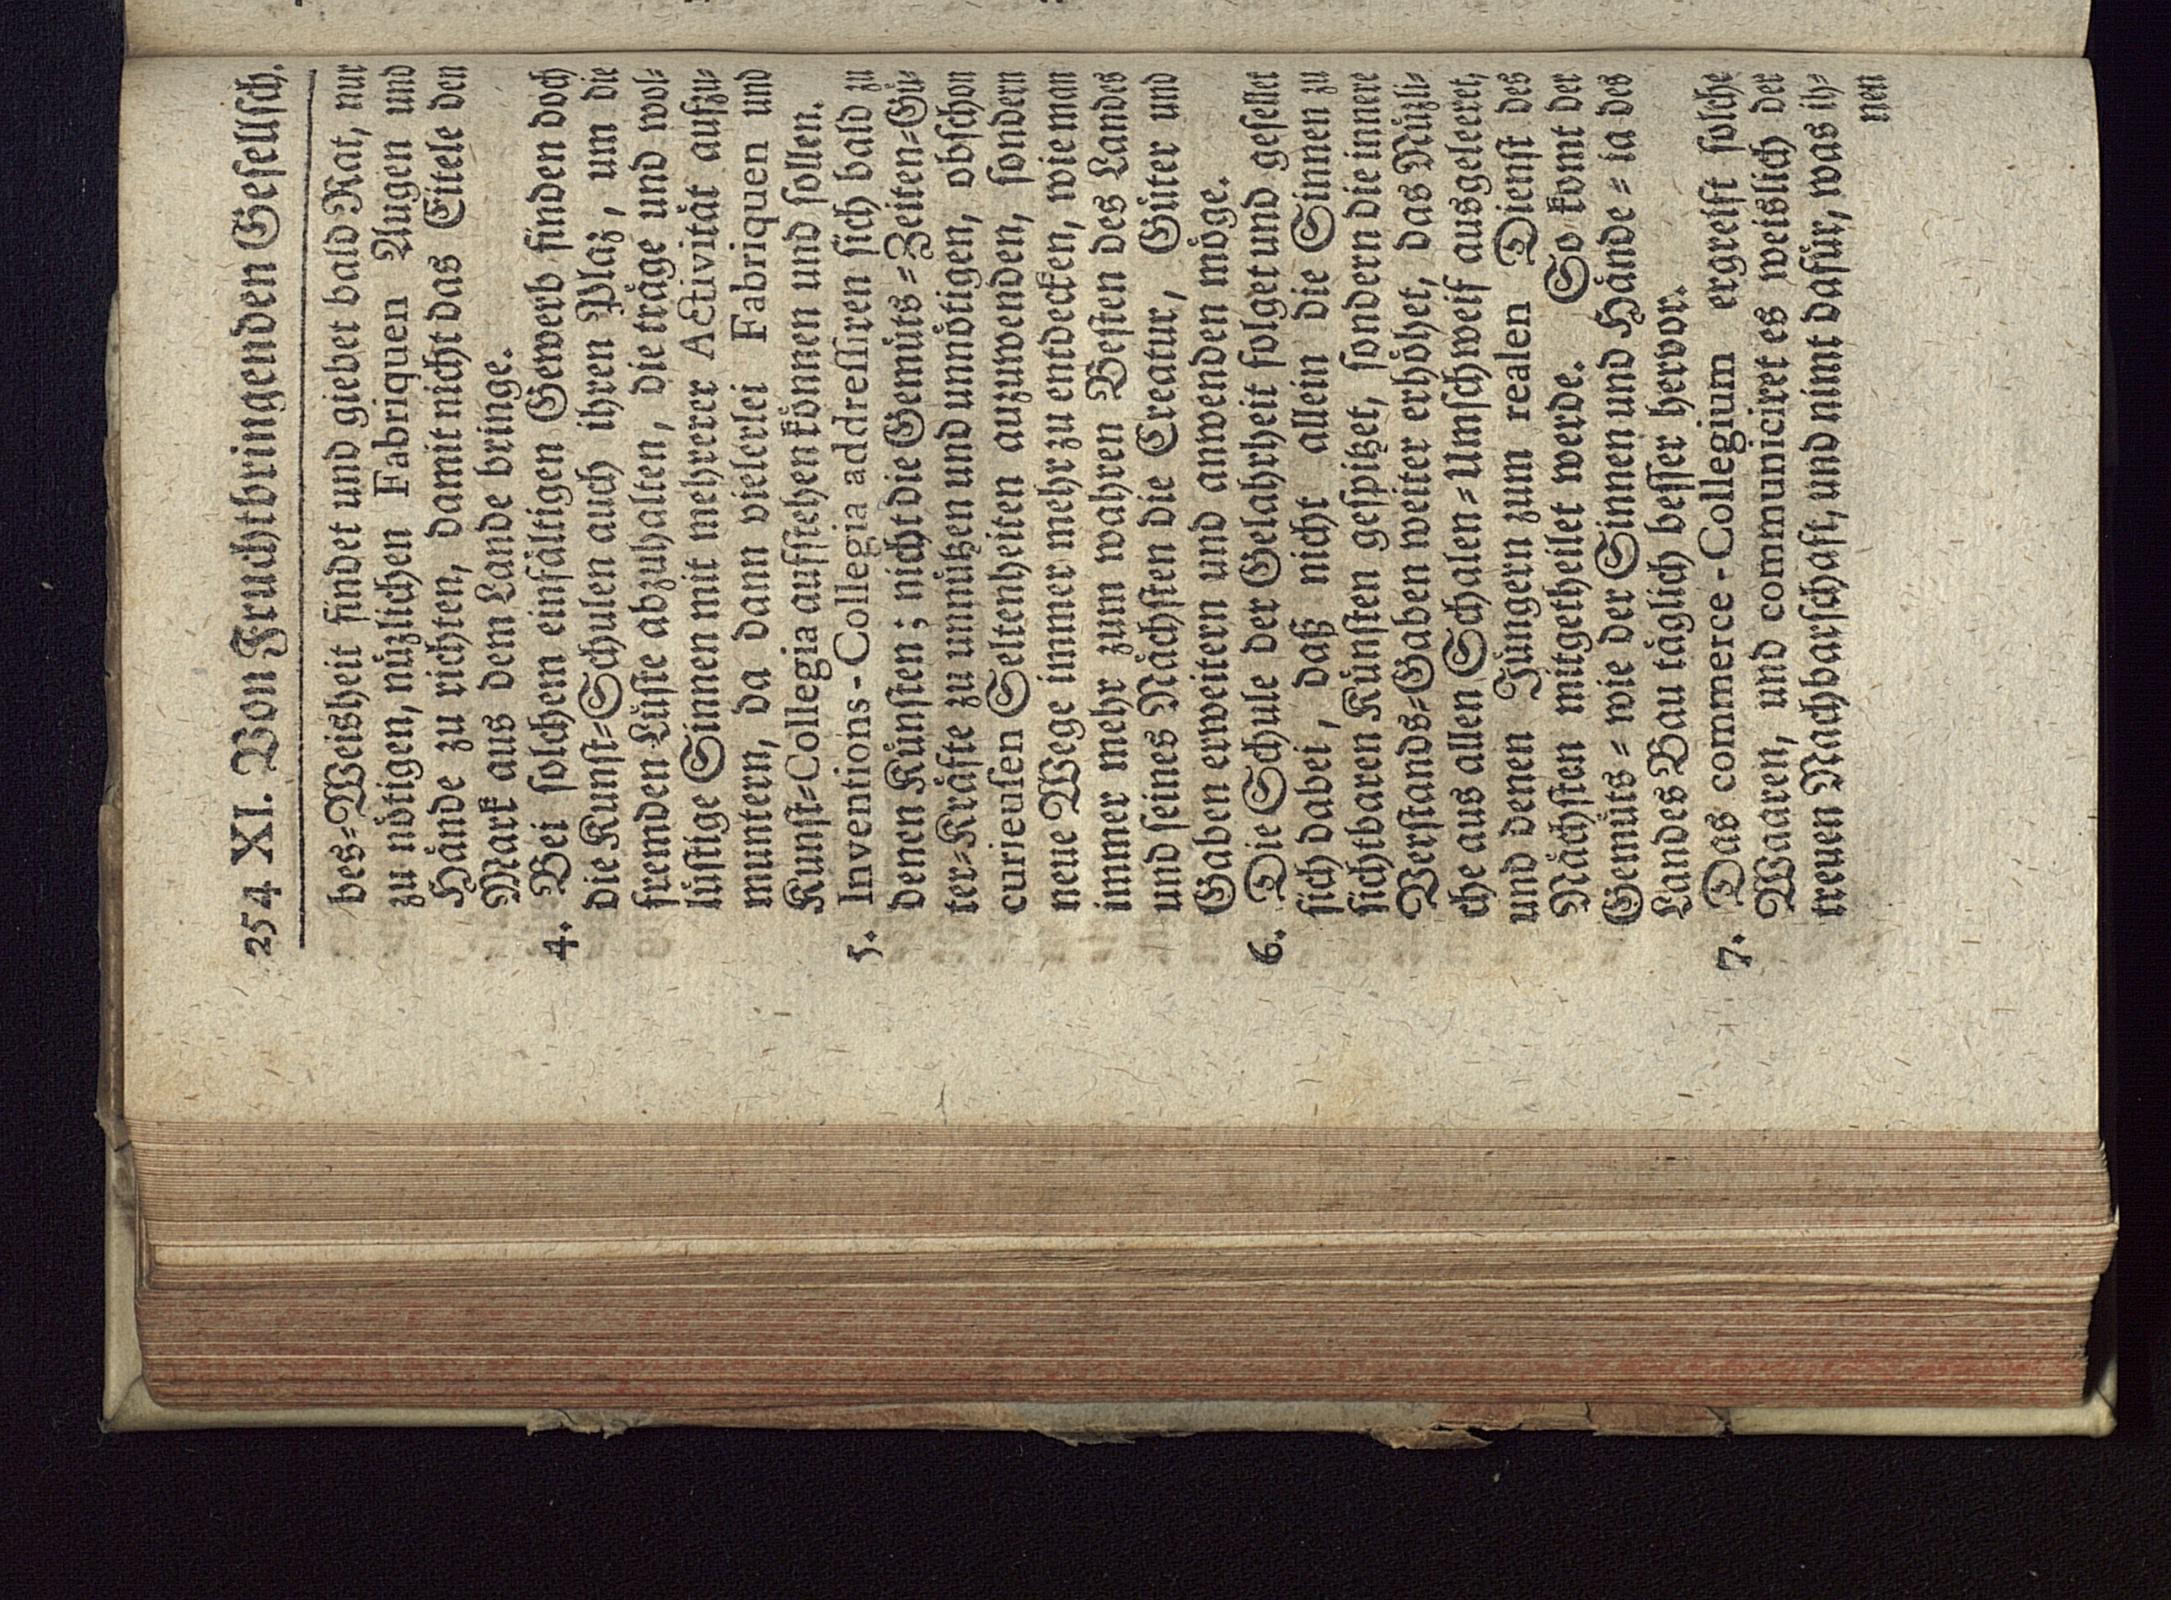 254 XI. Von Fruchtbringenden Gesellsch.
bes=Weisheit findet und giebet bald Rat, nur
zu nötigen, nüzlichen Fabriquen Augen und
Hände zu richten, damit nicht das Eitele den
Mark aus dem Lande bringe.
4. Bei solchem einfältigen Gewerb finden doch
die Kunst=Schulen auch ihren Plaz, um die
fremden Lüste abzuhalten, die träge und wol=
lüstige Sinnen mit mehrerer Activität aufzu=
muntern, da dann vielerlei Fabriquen und
Kunst=Collegia aufstehen können und sollen.
5. Inventions-Collegia addressiren sich bald zu
denen Künsten; nicht die Gemüts=Zeiten=Gü=
ter=Kräfte zu unnützen und unnötigen, obschon
curieusen Seltenheiten auzuwenden, sondern
neue Wege immer mehr zu entdecken, wie man
immer mehr zum wahren Besten des Landes
und seines Nächsten die Creatur, Güter und
Gaben erweitern und anwenden möge.
6. Die Schule der Gelahrheit folget und gesellet
sich dabei, daß nicht allein die Sinnen zu
sichtbaren Künsten gespitzet, sondern die innere
Verstands=Gaben weiter erhöhet, das Nüzli=
che aus allen Schalen=Umschweif ausgeleeret,
und denen Jüngern zum realen Dienst des
Nächsten mitgetheilet werde. So komt der
Gemüts = wie der Sinnen und Hände = ia des
Landes Bau täglich besser hervor.
7. Das commerce-Collegium ergreift solche
Waaren, und communiciret es weislich der
treuen Nachbarschaft, und nimt dafür, was ih=
nen